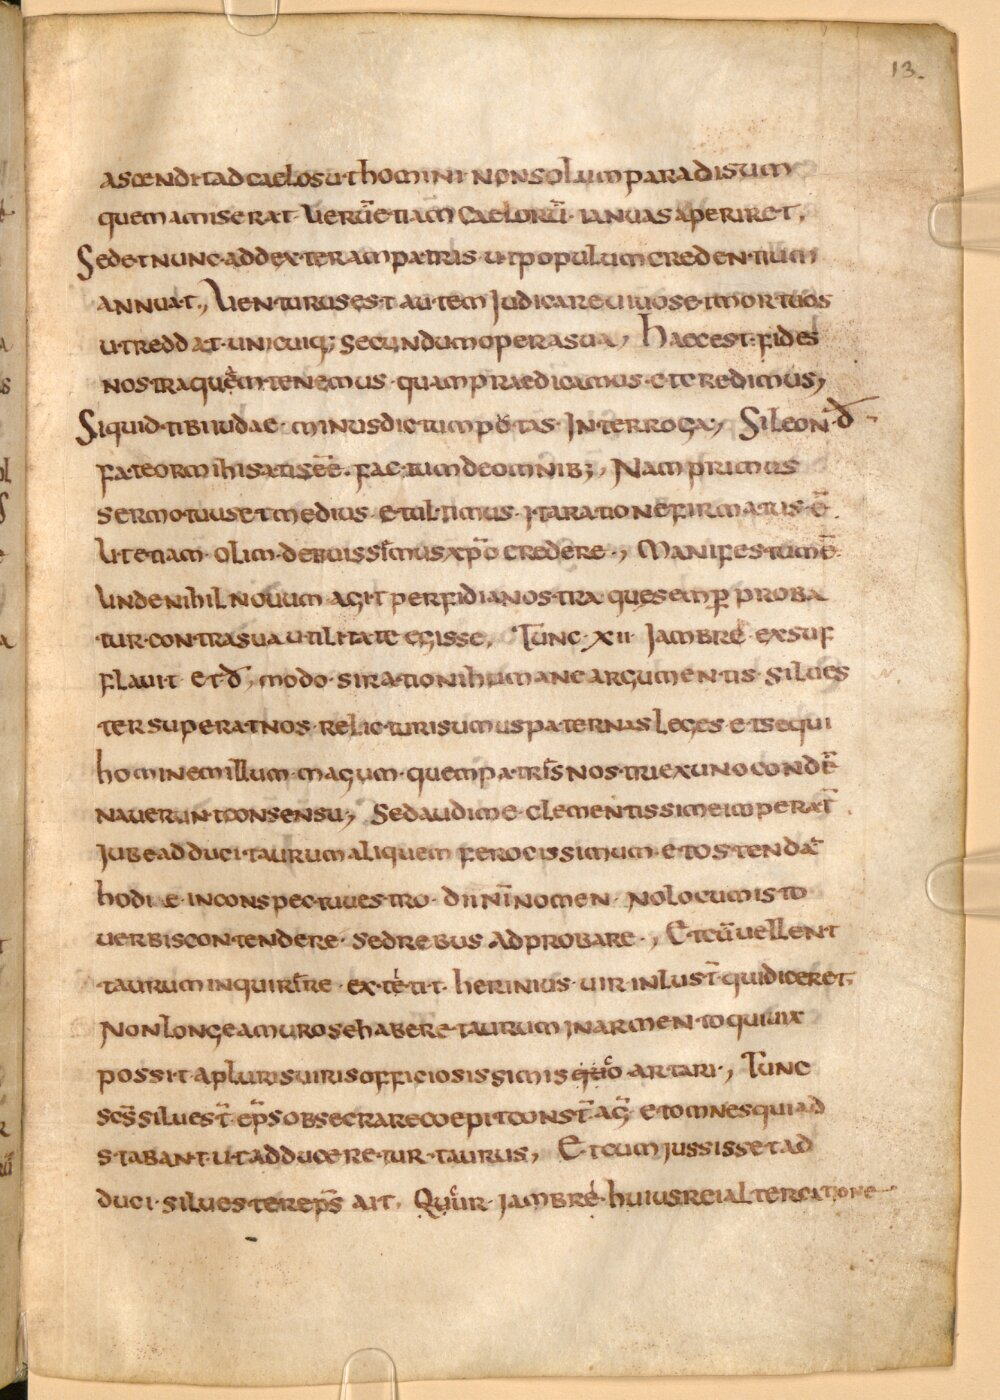 13.
ascendit ad caelos ut homini non solum paradisum
quem amiserat. Uerū etiam caelorū ianuas aperiret.
Sedet nunc ad dexteram patris ut populum credentium
annuat., Uenturus est autem judicare uiuos et mortuos
ut reddat unicuiq; secundum opera sua, Haec est fides
nostra quem tenemus quam praedicamus et credimus,
Siquid tibi iudae minus dictum potas interroga, Sileon d̄
fateor mihi satis eē factum de omnib; Nam primus
sermo tuus et medius et ultimus ita ratione firmatus ē
Ut etiam olim debuissemus xp̄o credere., Manifestum ē
Unde nihil nouum agit perfidia nostra que semp proba
tur contra sua utilitate egisse, Tunc xii Jambre exsuf
flauit et d̄, modo si rationi humane argumentis silues
ter superat nos relicturi sumus paternas leges et sequi
hominem illum magum quem patres nostri ex uno condē
nauerunt consensu, Sed audi me clementissime imperat̄
Jube adduci taurum aliquem ferocissimum et ostendā
hodie in conspectu uestro dīi nī nomen nolo cum isto
uerbis contendere sed rebus adprobare., Et cū uellent
taurum inquirere extetit herinius uir inlust̄ qui diceret.
Non longe a muro se habere taurum in armento qui uix
possit a pluris uiris officiosissimis quo artari, Tunc
sc̄s siluest̄ ep̄s obsecrare coepit const̄ aḡ et omnes qui ad
stabant ut adduceretur taurus, Et cum jussisset ad
duci siluester ep̄s ait. Quur jambre huius rei altercatione